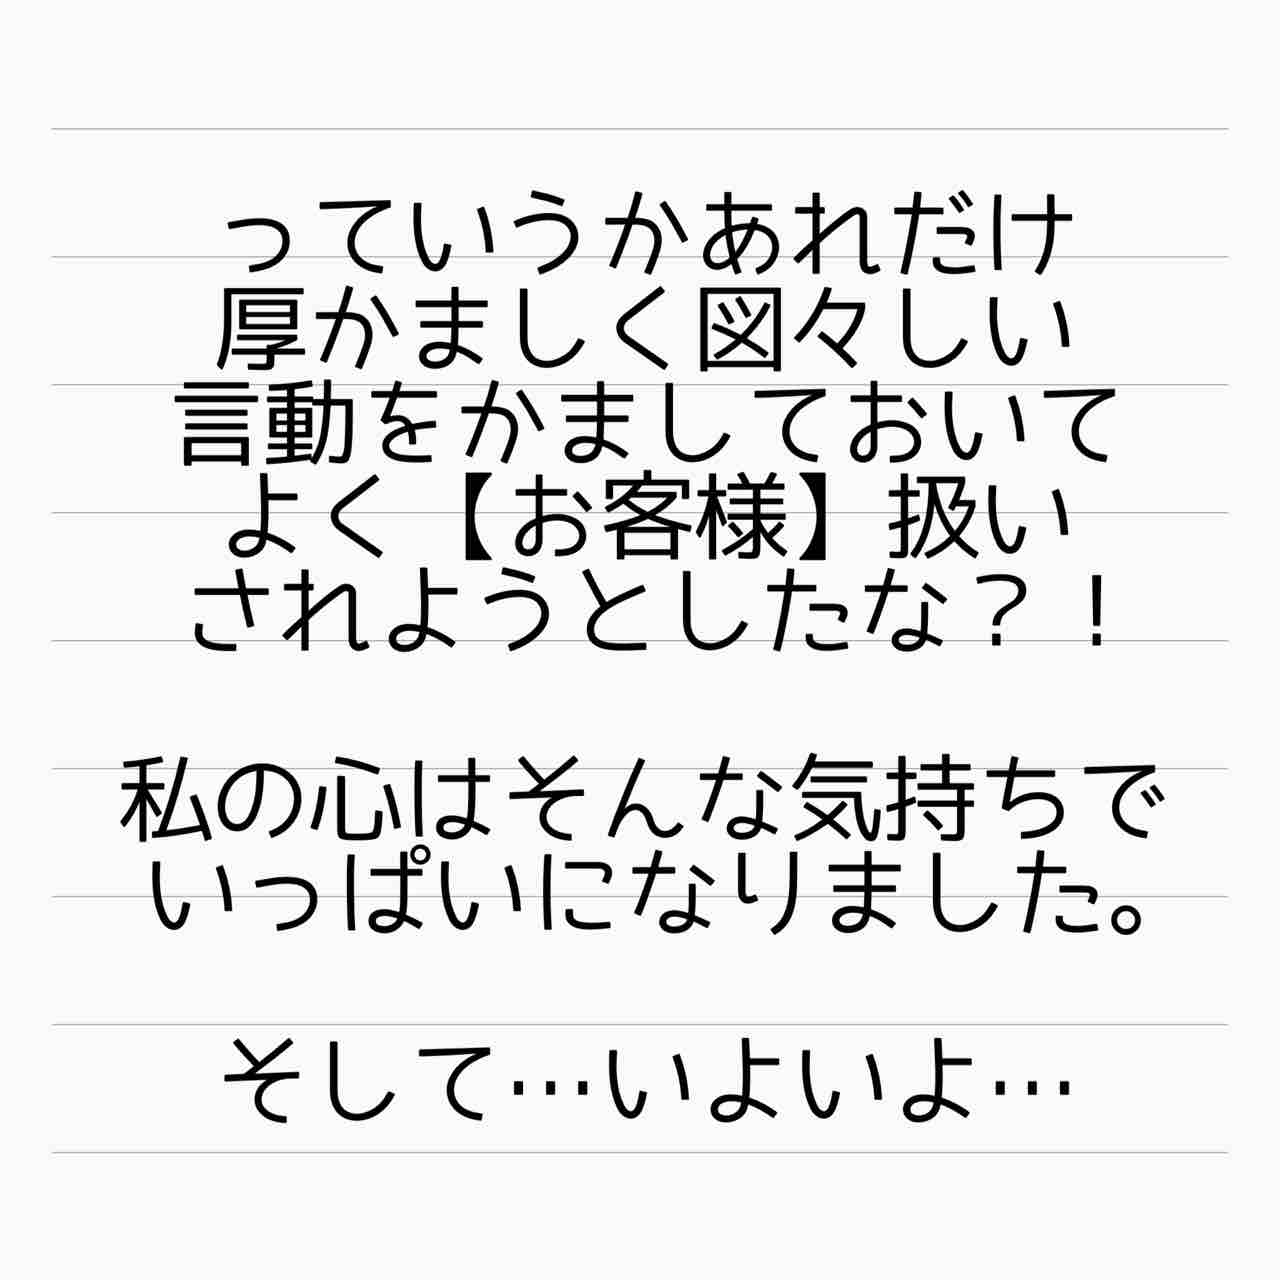 っていうかあれだけ
厚かましく図々しい
言動をかましておいて
よく【お客様】扱い
されようとしたな？！
私の心はそんな気持ちで
いっぱいになりました。
そして…いよいよ…